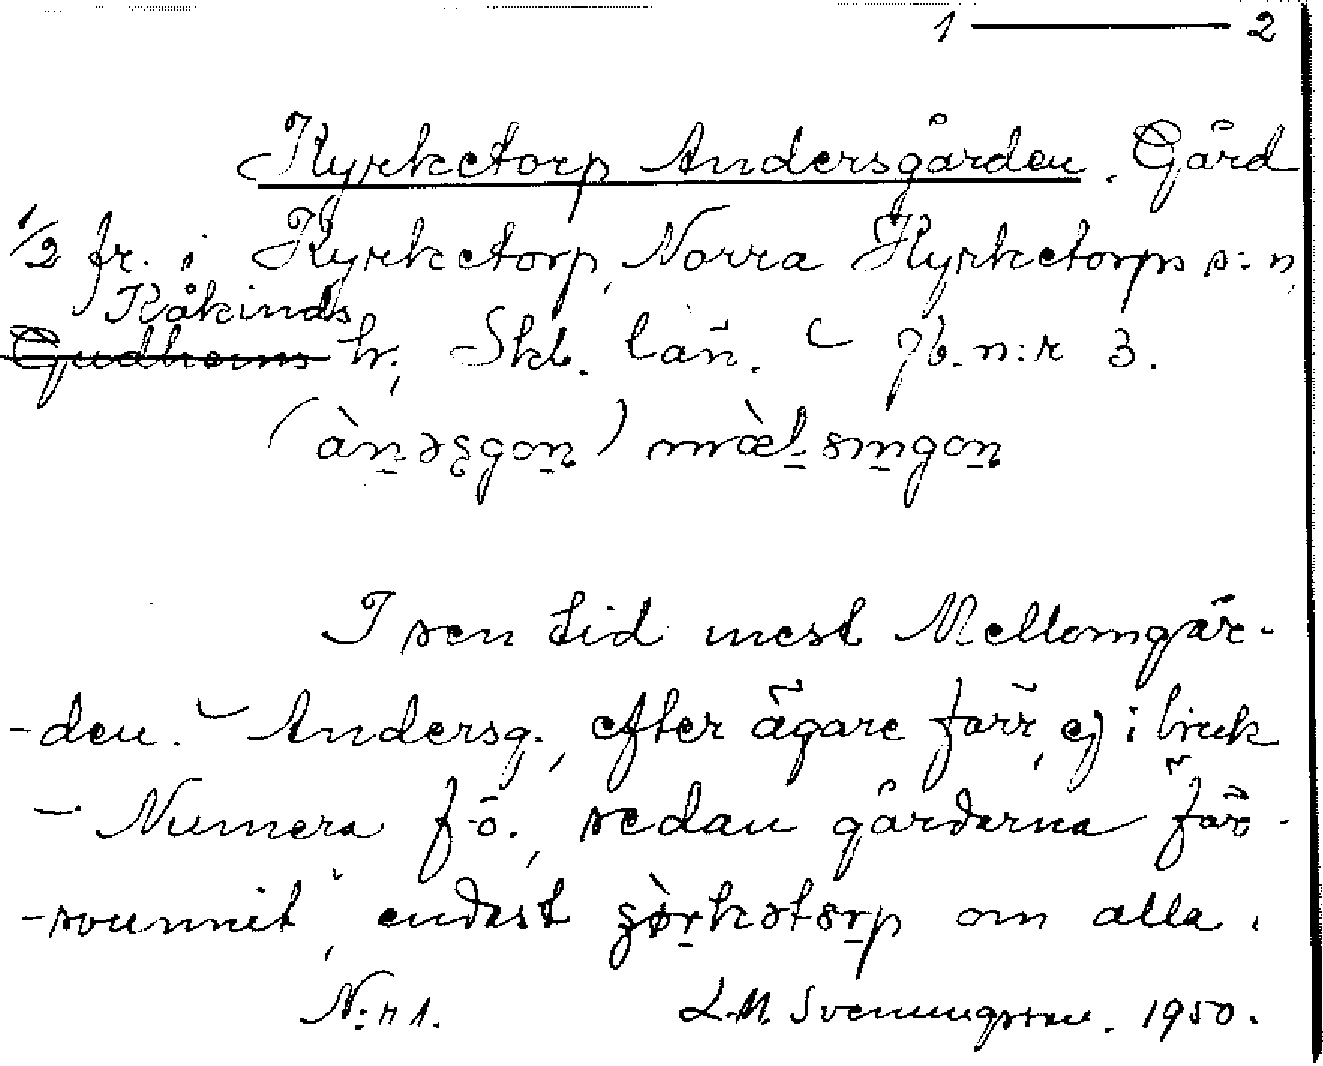 1 — 2
Kyrketorp Andersgården. Gård
1/2 fr. i Kyrketorp, Norra Kyrketorps s:n,
Kåkinds
Gudhems hr, Skb. län. — Jb. n:r 3.
I sen tid mest Mellomgår-
-den. — Andersg., efter ägare förr, ej i bruk
— Numera f-ö., sedan gårdarna för-
-svunnit, endast om alla.
N:r 1. L.M. Svenungsson. 1950.